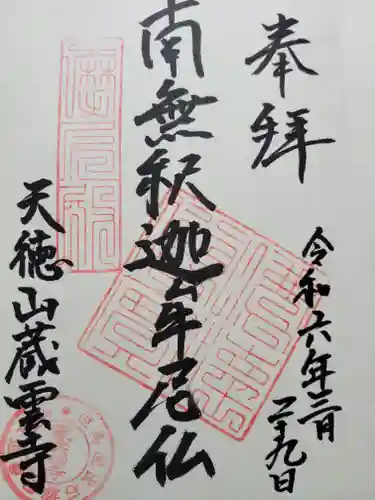 奉拝
令和六年三月
二十九日
南無釈迦牟尼仏
天徳山蔵雲寺